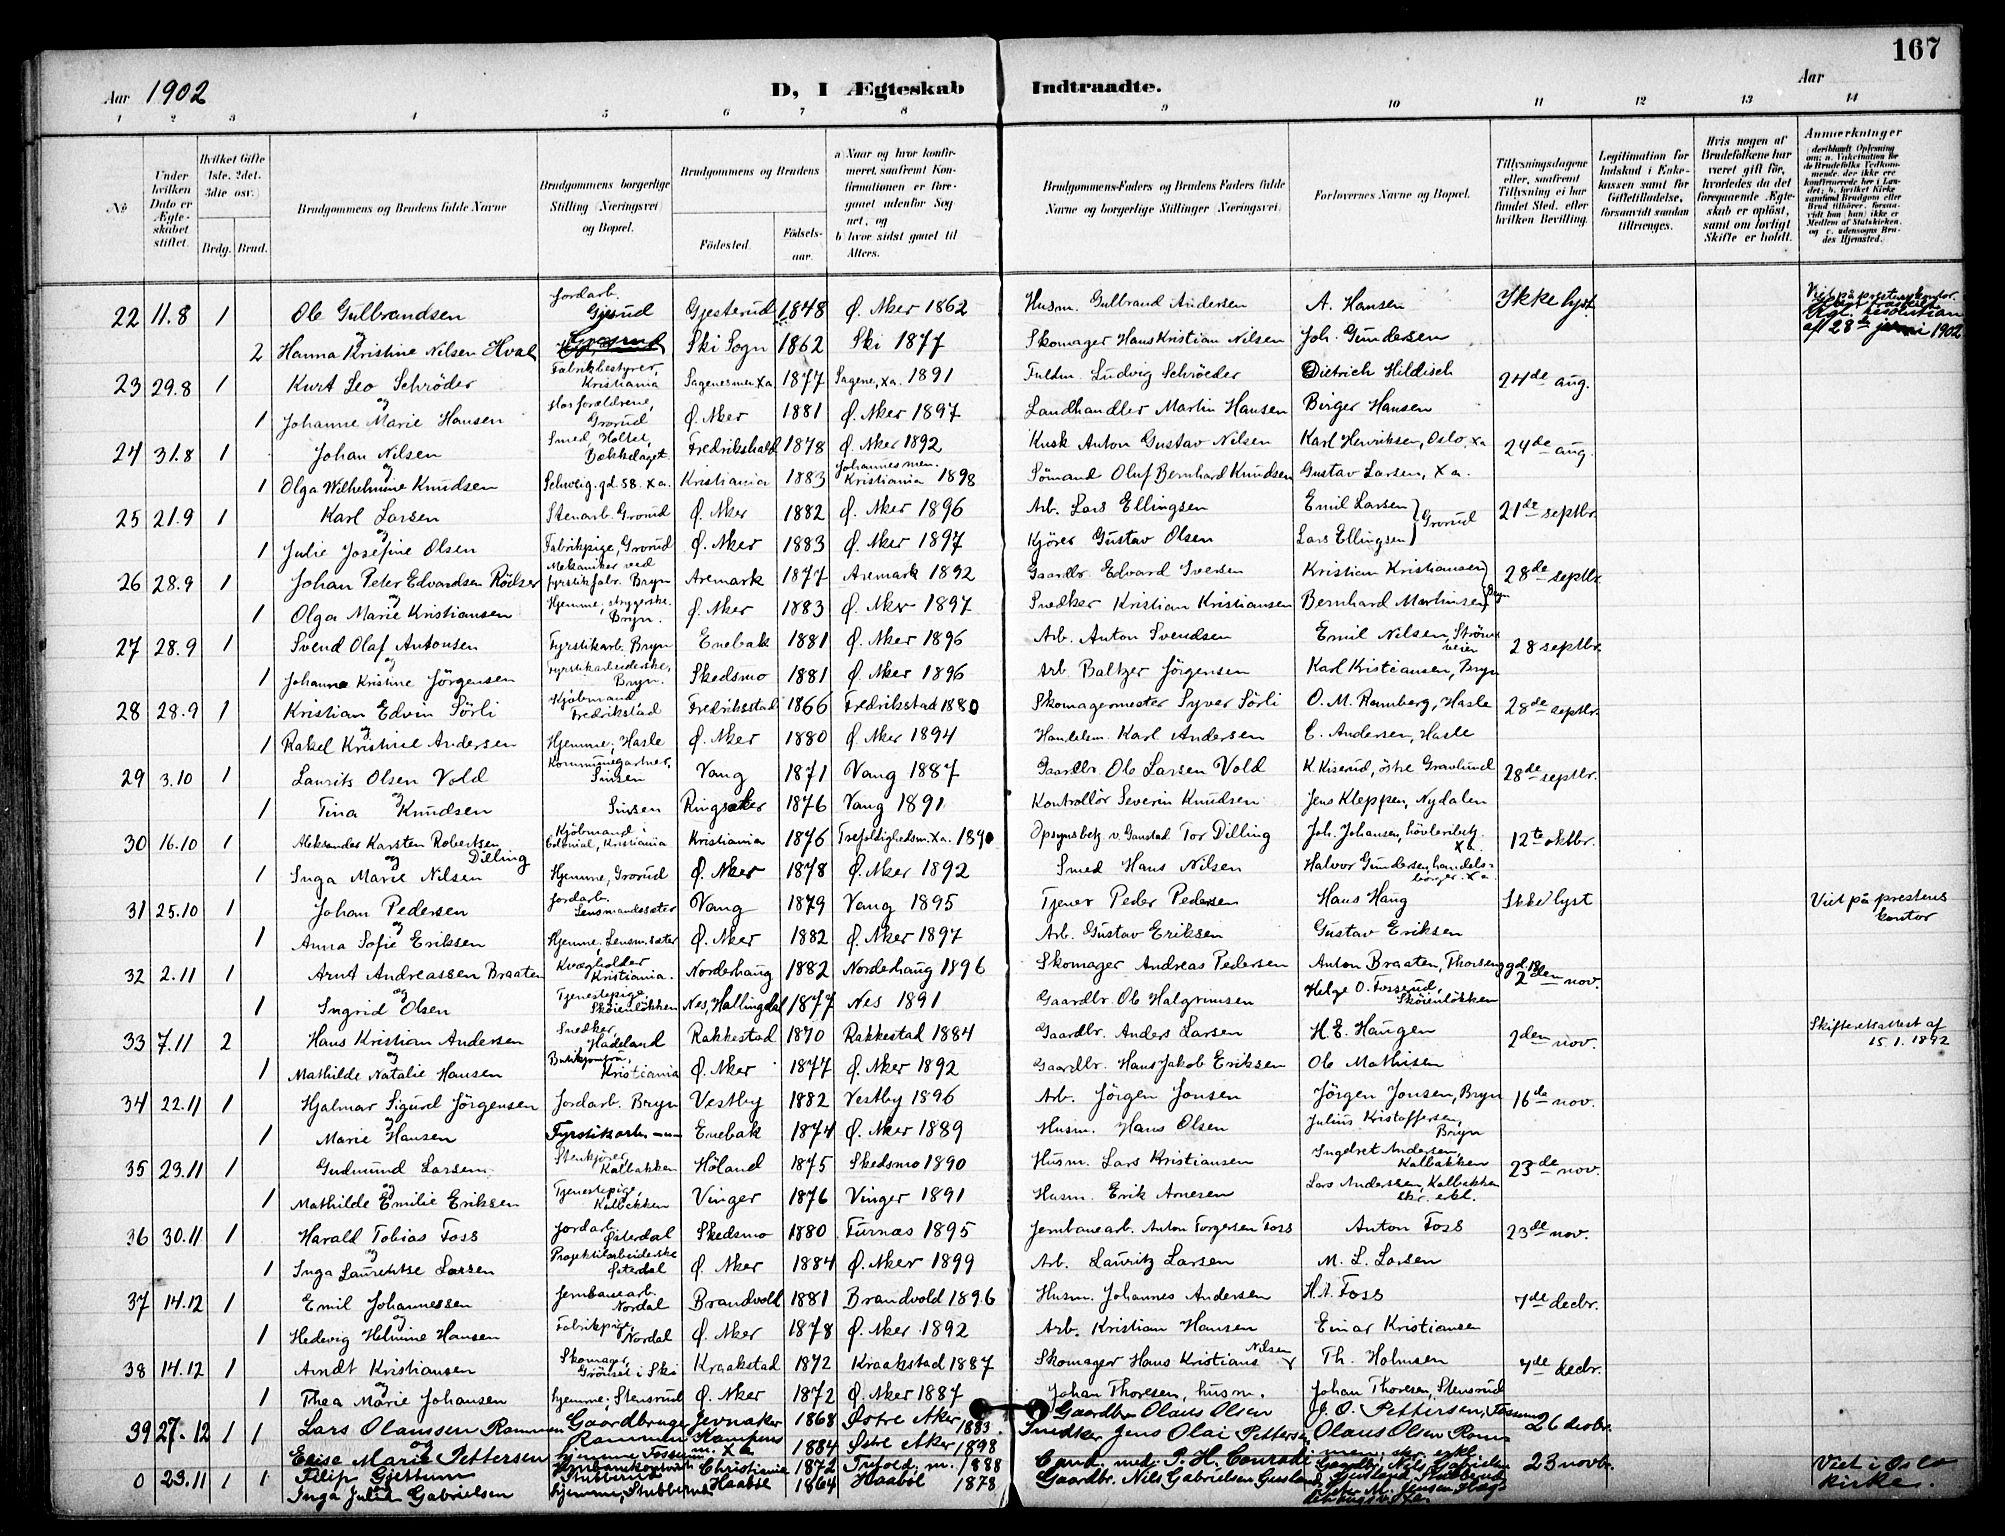 167
Aar 1902 D, I Ægteskab Indtraadte. Aar
1 2 3 4 5 6 7 8 9 10 11 12 13 14
No
Under hvilken Dato er Ægteskabet stiftet.
Hvilket Gifte 1ste. 2det. 3die osv.:
Brdg. Brud.
Brudgommens og Brudens fulde Navne
Brudgommens borgerlige Stilling (Næringsvei) og Bopæl.
Brudgommens og Brudens
Födested. Födselsaar.
a) Naar og hvor konfirmeret, saafremt Konfirmationen er foregaaet udenfor Sognet, og
b) hvor sidst gaaet til Alters.
Brudgommens Faders og Brudens Faders fulde Navne og borgerlige Stillinger (Næringsvei)
Forlovernes Navne og Bopæl.
Tillysningsdagene eller, saafremt Tillysning ei har fundet Sted, efter hvilken Bevilling.
Legitimation for Indskud i Enkekassen samt for Giftetilladelse, forsaavidt saadan tiltrænges.
Hvis nogen af Brudefolkene har været gift för, hvorledes da det foregaaende Ægteskab er oplöst, samt om lovligt Skifte er holdt.
Anmærkninger
22 11.8 1 Ole Gulbrandsen Jordarb. Gjesterud 1848 Ø. Aker 1862 Husm. Gulbrand Andersen A. Hansen Ikke lyst
og 2 Hanna Kristine Nilsen Hval Ski Sogn 1862 Ski 1877 Skomager Hans Kristian Nilsen Joh. Gundersen af 28de juni 1902
23 29.8 1 Kurt Leo Schröder Fabrikbestyrer, Kristiania 1877 Sagene, Xa. 1891 Fuldm. Ludvig Schröeder Dietrich Hildisch 24de aug.
og 1 Johanne Marie Hansen Hos forældrene, Grorud Ø. Aker 1881 Ø. Aker 1897 Landhandler Martin Hansen Birger Hansen
24 31.8 1 Johan Nilsen Smed, Holtet, Bækkelaget Fredrikshald 1878 Ø. Aker 1892 Kusk Anton Gustav Nilsen Karl Henriksen, Oslo, Xa 24de aug.
og 1 Olga Wilhelmine Knudsen Schweig. gd 58. Xa. Kristiania 1883 Johannes men. Kristiania 1898 Sömand Oluf Bernhard Knudsen Gustav Larsen, Xa.
25 21.9 1 Karl Larsen Stenarb. Grorud Ø. Aker 1882 Ø. Aker 1896 Arb. Lars Ellingsen Emil Larsen Grorud 21de septbr.
og 1 Julie Josefine Olsen Fabrikpige, Grorud Ø. Aker 1883 Ø. Aker 1897 Kjörer Gustav Olsen Lars Ellingsen
26 28.9 1 Johan Peter Edvardsen Mekaniker ved fyrstikfabr. Bryn Aremark 1877 Aremark 1892 Gaardbr. Edvard Iversen Kristian Kristiansen 28de septbr.
og 1 Olga Marie Kristiansen Hjemme, strygerske. Bryn. Ø. Aker 1883 Ø. Aker 1897 Snedker Kristian Kristiansen Bernhard Martinsen Bryn
27 28.9 1 Svend Olaf Antonsen Fyrstikarb. Bryn Enebak 1881 Ø. Aker 1896 Arb. Anton Svendsen Emil Nilsen, 28 septbr.
og 1 Johanne Kristine Jörgensen Fyrstikarbeiderske, Bryn. Skedsmo 1881 Ø. Aker 1896 Arb Baltzer Jörgensen Karl Kristiansen, Bryn
28 28.9 1 Kristian Edvin Sörli Kjöbmand Fredrikstad Fredriksstad 1866 Fredriksstad 1880 Skomagermester Syver Sörli O. M. Ramberg, Hasle 28de septbr.
og 1 Rakel Kristine Andersen Hjemme, Hasle Ø. Aker 1880 Ø. Aker 1894 Handelsm. Karl Andersen C. Andersen, Hasle
29 3.10 1 Laurits Olsen Vold Kommunegartner, Sinsen Vang 1871 Vang 1887 Gaardbr. Ole Larsen Vold K. Kiserud, östre Gravlund 28de septbr.
og 1 Tina Knudsen Sinsen Ringsaker 1876 Vang 1891 Kontrollör Severin Knudsen Jens Kleppen, Nydalen
30 16.10 1 Aleksander Karsten Robertsen Dilling Kjöbmand i Colonial, Kristiania Kristiania 1876 Trefoldighedsm. Xa. 1890 Opsynsbetj. v. Gaustad Tor Dilling Joh. Johansen, Xa. 12te oktbr.
og 1 Inga Marie Nilsen Hjemme, Grorud Ø. Aker 1878 Ø. Aker 1892 Smed Hans Nilsen Halvor Gundersen, handelsborger Xa.
31 25.10 1 Johan Pedersen Jordarb. Lensmandssæter Vang 1879 Vang 1895 Tjener Peder Pedersen Hans Haug Ikke lyst Viet på prestens kontor
og 1 Anna Sofie Eriksen Hjemme. Lensm.sæter Ø. Aker 1882 Ø. Aker 1897 Arb. Gustav Eriksen Gustav Eriksen
32 2.11 1 Arnt Andreassen Braaten Kvægholder Kristiania. Norderhaug 1882 Norderhaug 1896 Skomager Andreas Pedersen Anton Braaten, 2den nov.
og 1 Ingrid Olsen Tjenestepige, Sköienlökken Nes, Hallingdal 1877 Nes 1891 Gaardbr. Ole Halgrimsen Helge O. Fosserud, Sköienlökken
33 7.11 2 Hans Kristian Andersen Snedker, Hadeland Rakkestad 1870 Rakkestad 1884 Gaardbr. Anders Larsen H. E. Haugen 2den nov. Skifteretsattest af 15.1.1892
og 1 Mathilde Natalie Hansen Kristiania Ø. Aker 1877 Ø. Aker 1892 Gaardbr. Hans Jakob Eriksen Ole Mathisen
34 22.11 1 Hjalmar Sigurd Jörgensen Jordarb. Bryn Vestby 1882 Vestby 1896 Arb. Jörgen Jonsen Jörgen Jonsen, Bryn 16de nov.
og 1 Marie Hansen Fyrstikarb. —"— Enebak 1874 Ø. Aker 1889 Husm. Hans Olsen Julius Kristoffersen, Bryn
35 23.11 1 Gudmund Larsen Stenkjörer, Kalbakken Höland 1875 Skedsmo 1890 Husm. Lars Kristiansen Ingebret Andersen, Kalbakken 23de nov.
og 1 Mathilde Emilie Eriksen Tjenestepige, Kalbakken Vinger 1876 Vinger 1891 Husm. Erik Arnesen Lars Anderssen, Kalbakken skr. erkl.
36 30.11 1 Harald Tobias Foss Jordarb. Østerdal Skedsmo 1880 Furnæs 1895 Jernbanearb. Anton Torgersen Foss Anton Foss 23de nov.
og 1 Inga Laurentse Larsen Projektilarbeiderske Østerdal Ø. Aker 1884 Ø. Aker 1899 Arb. Lauritz Larsen M. L. Larsen
37 14.12 1 Emil Johannessen Jernbanearb. Nordal Brandvold 1881 Brandvold 1896 Husm. Johannes Andersen H. A. Foss 7de decbr.
og 1 Hedevig Helmine Hansen Fabrikpige, Nordal Ø. Aker 1878 Ø. Aker 1892 Arb. Kristian Hansen Einar Kristiansen
38 14.12 1 Arndt Kristiansen Skomager, i Ski Kraakstad 1872 Kraakstad 1887 Skomager Hans Kristians Nilsen Th. Holmsen 7de decbr.
og 1 Thea Marie Johansen hjemme, Stensrud Ø. Aker 1872 Ø. Aker 1887 Johan Thoresen, husm. Johan Thoresen, Stensrud
39 27.12 1 1 Lars Olaussen Rammen Gaardbruger Rammen Jevnaker 1868 Østre Aker 1883. Gaardbr. Olaus Olsen J. O. Pettersen, 26 decbr.
og Elise Marie Pettersen hjemme, Kampens m. Xa 1884 Østre Aker 1898 Snedker Jens Olai Pettersen Olaus Olsen
0 23.11 1 1 Filip Gjessum Christiania 1872 Trefold. m. 1888 Cand. med. P. H. Conradi Gaardbr. Nils Gabrielsen 23 novbr. Viet i Oslo kirke.
Inga Julie Gabrielsen hjemme, Stubberud Haabøl 1864 Haabøl 1878 Gaardbr. Nils Gabrielsen